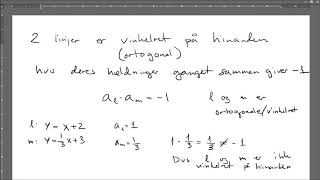 2 linjer er vinkelret på hinanden
(ortogonal)
hvis deres hældninger ganget sammen giver -1
aₗ · aₘ = -1
l og m er
ortogonale/vinkelret
l: y = x + 2
aₗ = 1
m: y = 1/3 x + 3
aₘ = 1/3
1 · 1/3 = 1/3 ≠ -1
Dvs l og m er ikke
vinkelret på hinanden